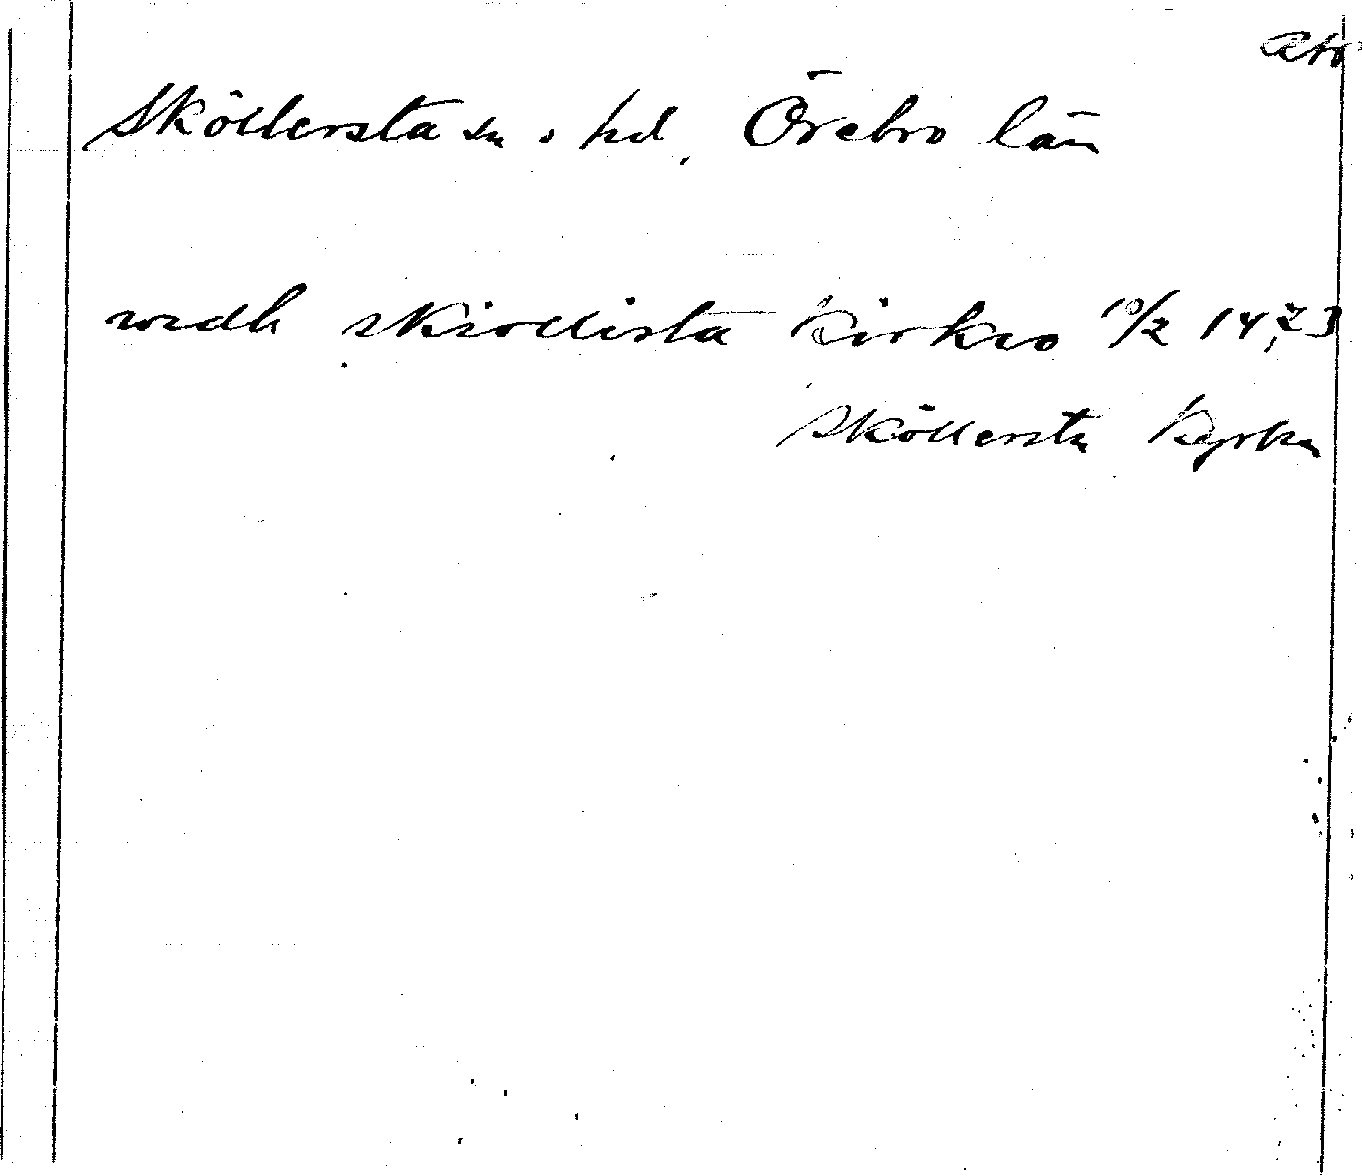 Sköllersta sn o hd. Örebro län
widh skiollista kirkio 10/2 1473
Sköllersta kyrka